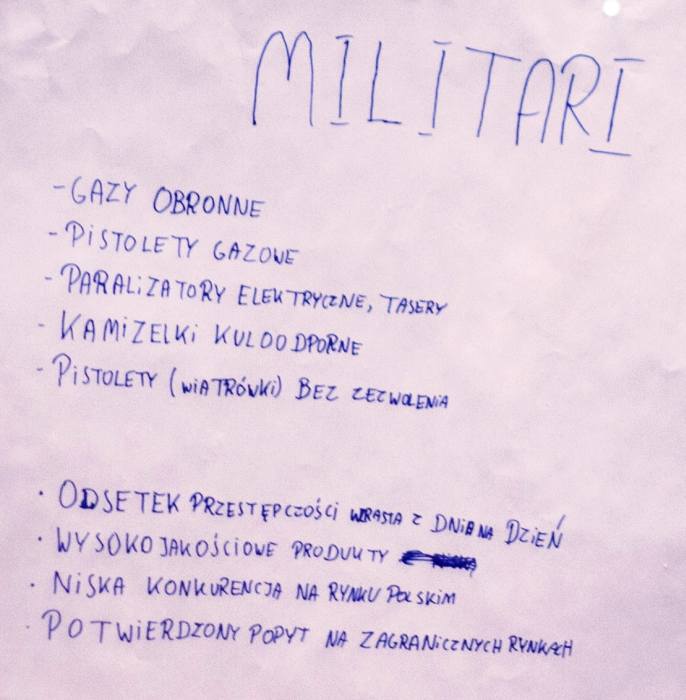 MILITARI
- GAZY OBRONNE
- PISTOLETY GAZOWE
- PARALIZATORY ELEKTRYCZNE, TASERY
- KAMIZELKI KULOODPORNE
- PISTOLETY (WIATRÓWKI) BEZ ZEZWOLENIA
· ODSETEK PRZESTĘPCZOŚCI WRASTA Z DNIA NA DZIEŃ
· WYSOKO JAKOŚCIOWE PRODUKTY
· NISKA KONKURENCJA NA RYNKU POLSKIM
· POTWIERDZONY POPYT NA ZAGRANICZNYCH RYNKACH